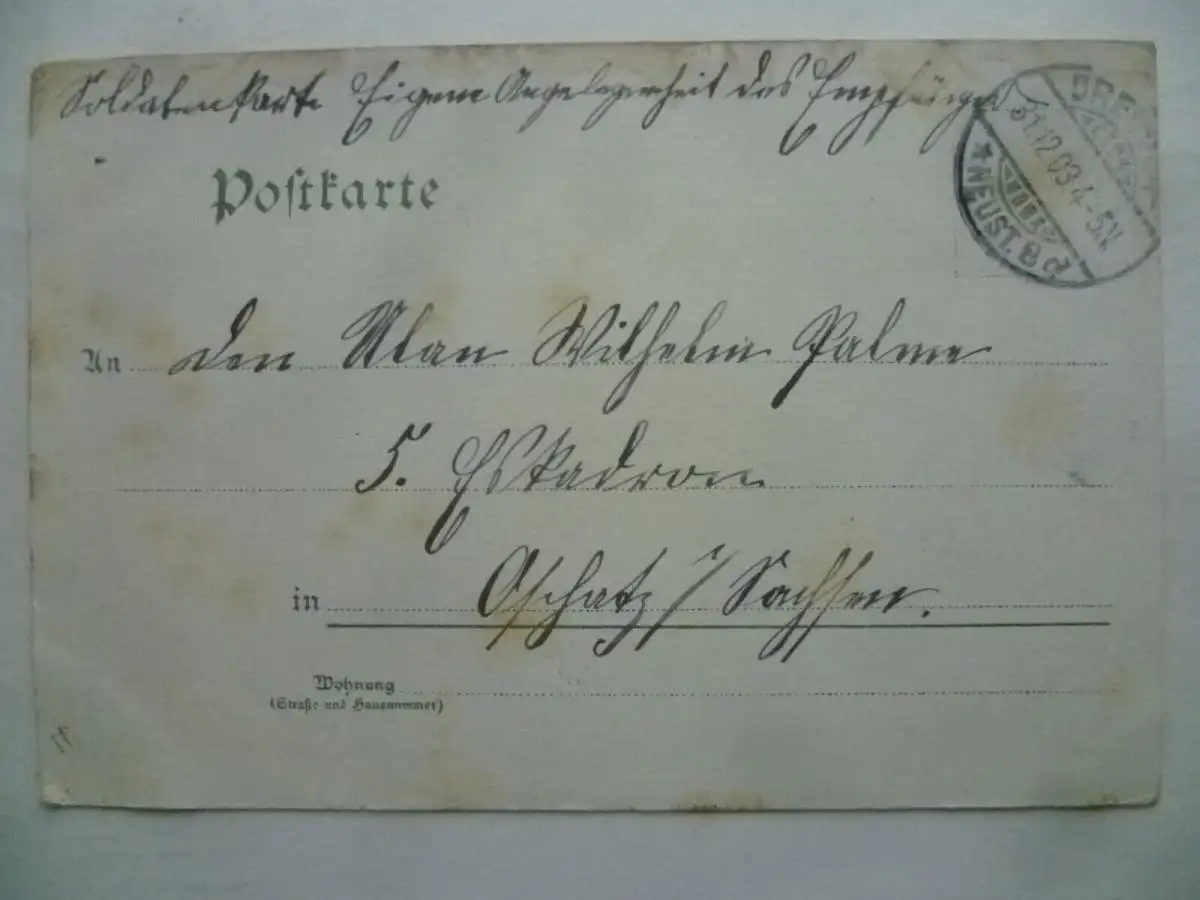 Soldatenkarte Eigene Angelegenheit des Empfängers
Postkarte
31.12.03.4-5N.
* NEUST. 8 d
An den Ulan Wilhelm Palme
5. Eskadron
in Oschatz / Sachsen.
Wohnung
(Straße und Hausnummer)